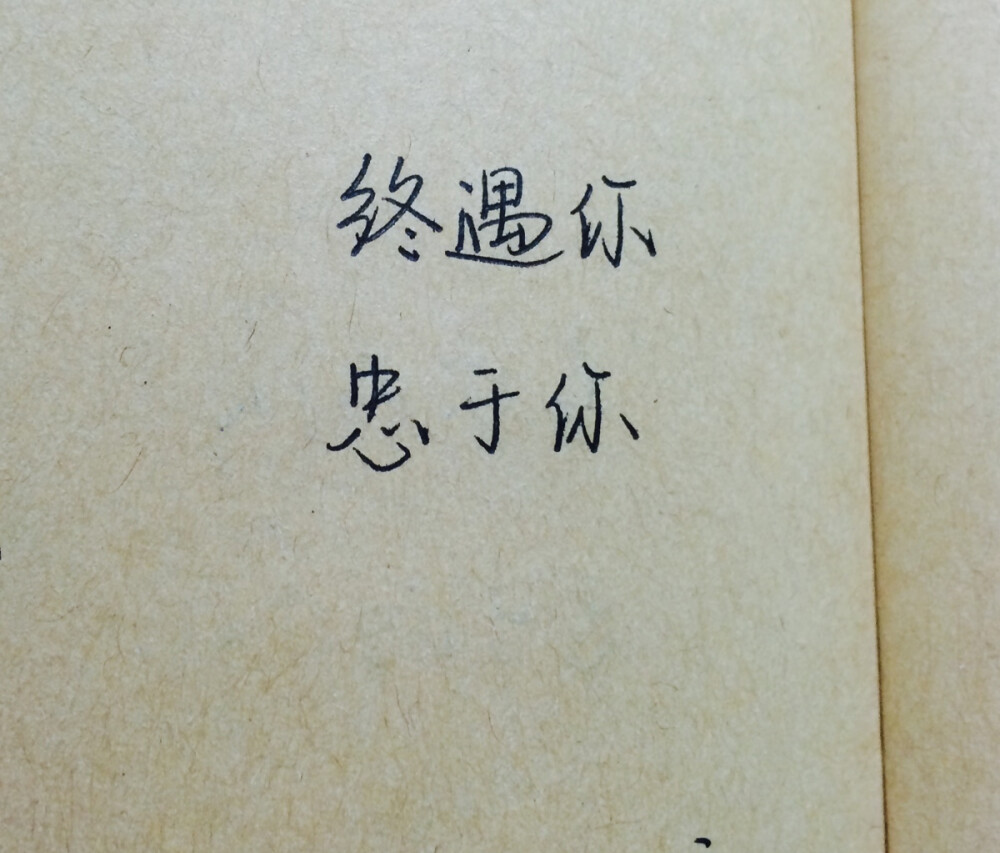 终遇你
忠于你